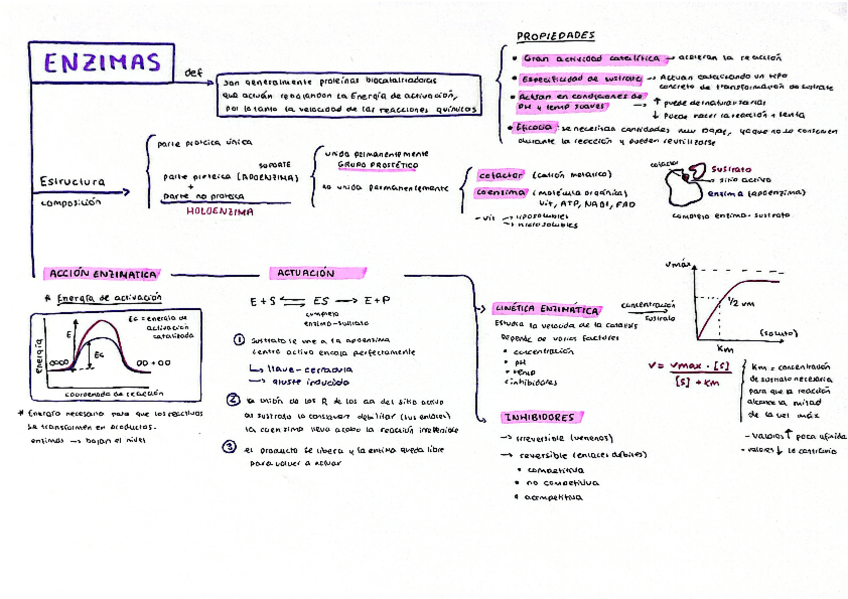 ENZIMAS
def
son generalmente proteínas biocatalizadoras
que actúan rebajando la Energía de activación,
por lo tanto la velocidad de las reacciones químicas
PROPIEDADES
• Gran actividad catalítica → aceleran la reacción
• Especificidad de sustrato → Actúan catalizando un tipo
concreto de transformación de sustrato
• Actúan en condiciones de
pH y temp suaves → ↑ puede desnaturalizarlas
↓ puede hacer la reacción + lenta
• Eficacia: se necesitan cantidades muy bajas, ya que no se consumen
durante la reacción y pueden reutilizarse
Estructura
composición
parte proteica única
soporte
parte proteica (APOENZIMA)
+
parte no proteica
HOLOENZIMA
unida permanentemente
GRUPO PROSTÉTICO
no unida permanentemente
cofactor (catión metálico)
coenzima (molécula orgánica)
Vit, ATP, NADH, FAD
- vit → liposolubles
→ hidrosolubles
cofactor
sustrato
sitio activo
enzima (apoenzima)
complejo enzima-sustrato
ACCIÓN ENZIMATICA
* Energía de activación
energía
E
Ea
Ea = energía de
activación
catalizada
coordenada de reacción
* Energía necesaria para que los reactivos
se transformen en productos.
enzimas → bajan el nivel
ACTUACIÓN
E + S ⇌ ES → E + P
complejo
enzima-sustrato
1 sustrato se une a la apoenzima
centro activo encaja perfectamente
↳ llave-cerradura
→ ajuste inducido
2 la unión de los R de los aa del sitio activo
al sustrato lo consiguen debilitar (sus enlaces)
la coenzima lleva acabo la reacción
3 el producto se libera y la enzima queda libre
para volver a actuar
CINÉTICA ENZIMÁTICA
Estudia la velocidad de la catálisis
Depende de varios factores
• concentración
• pH
• temp
• inhibidores
concentración
sustrato
vmáx
1/2 vm
Km
v = vmax · [S]
[S] + Km
Km = concentración
de sustrato necesaria
para que la reacción
alcance la mitad
de la vel máx
- valores ↑ poca afinidad
- valores ↓ lo contrario
INHIBIDORES
→ irreversible (venenos)
→ reversible (enlaces débiles)
• competitiva
• no competitiva
• acompetitiva